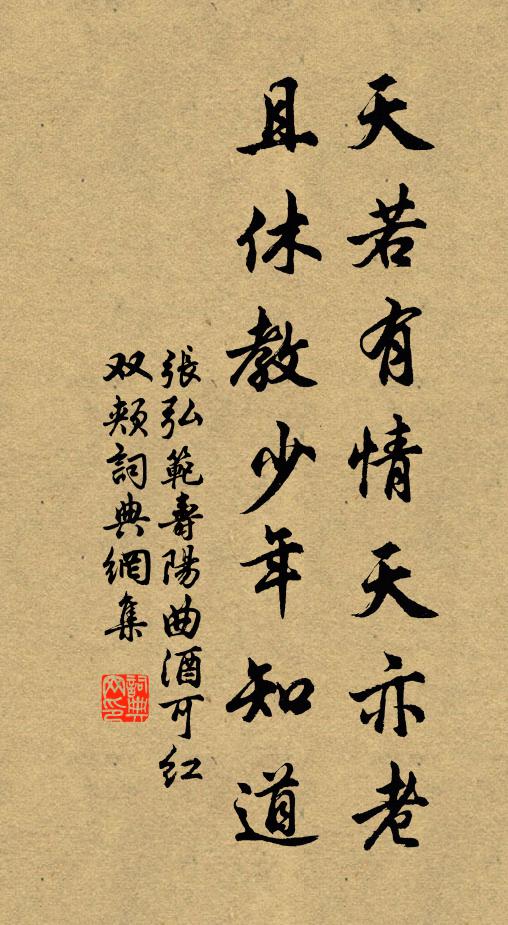 天若有情天亦老
且休教少年知道
張弘範壽陽曲酒可红
双頰詞典網集
詞典網印